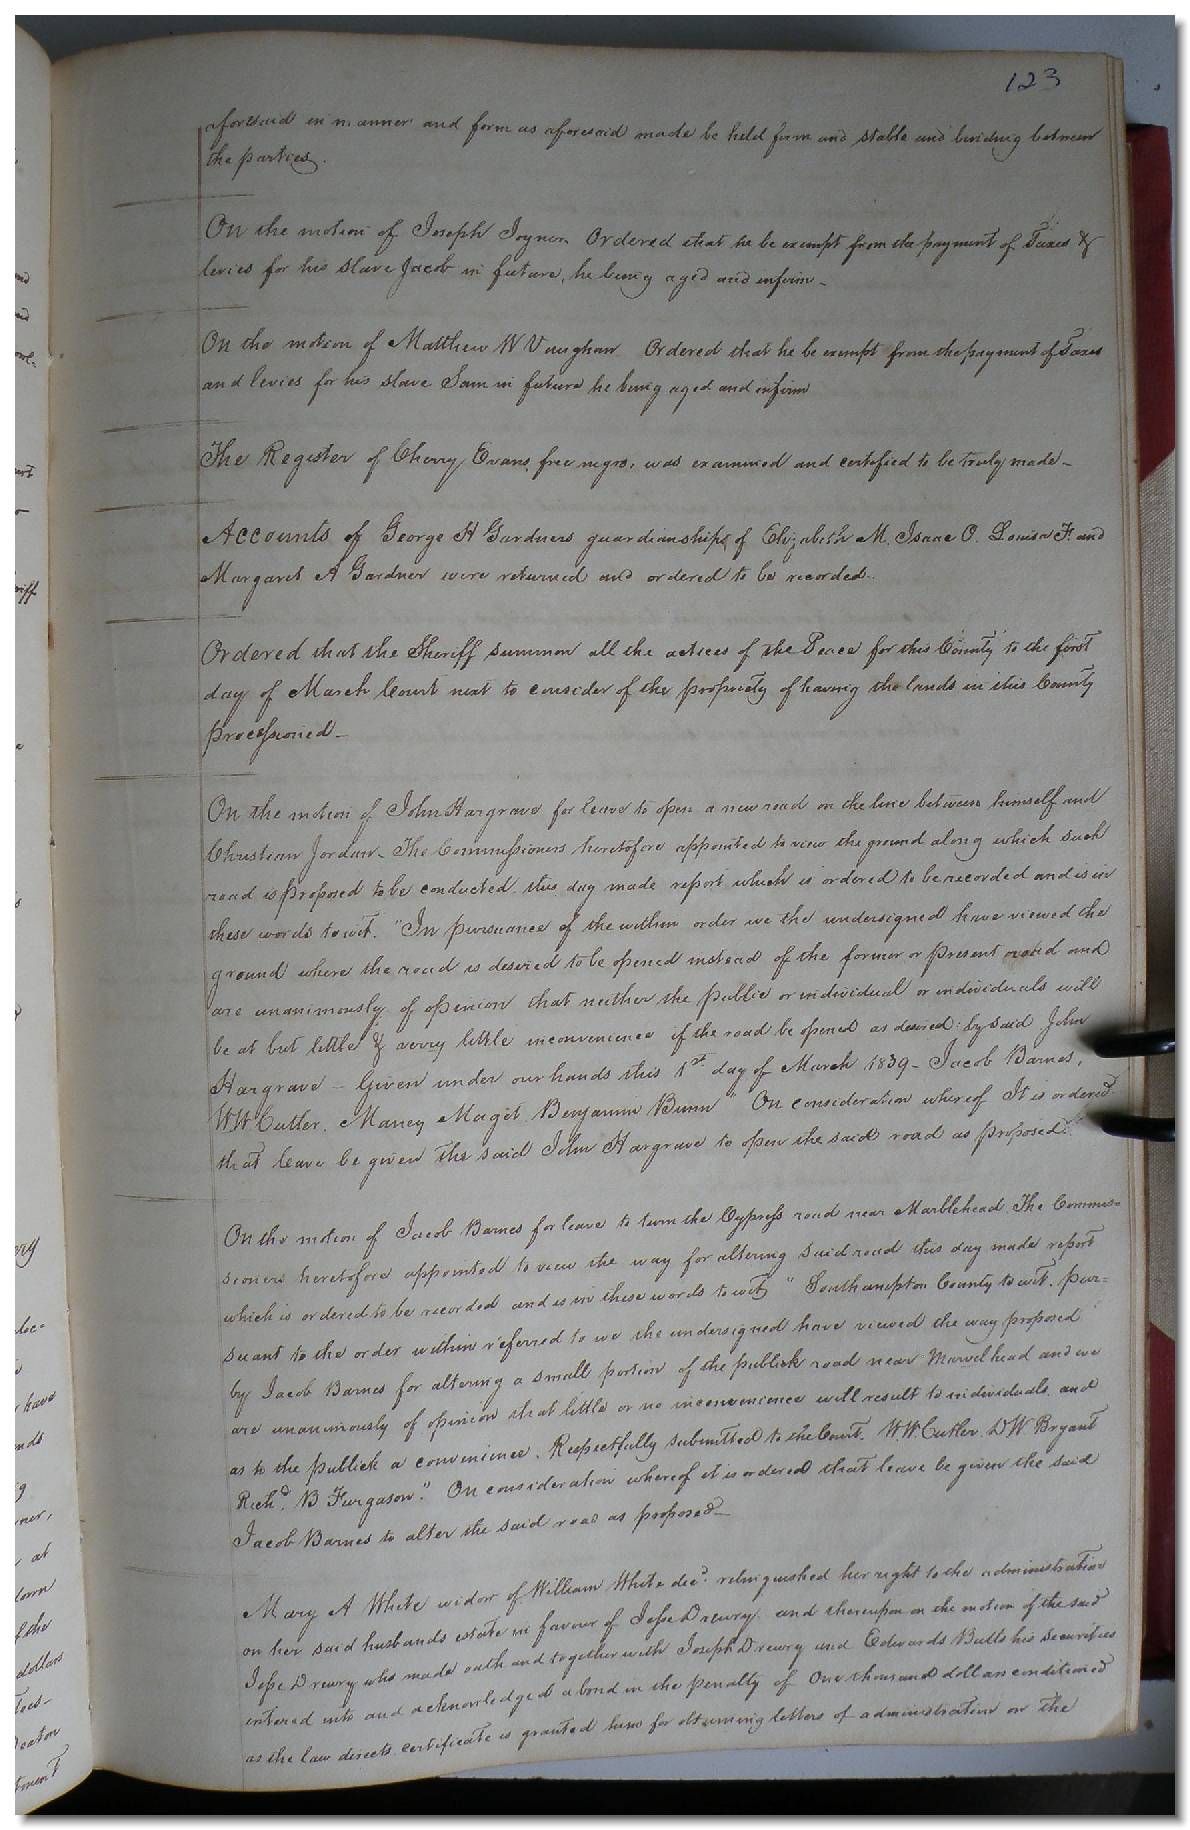 123
aforesaid in manner and form as aforesaid made be held form and stable and binding between
the parties.
On the motion of Joseph Joyner Ordered that he be exempt from the payment of Taxes &
levies for his slave Jacob in future, he being aged and infirm -
On the motion of Matthew W Vaughan Ordered that he be exempt from the payment of Taxes
and levies for his slave Sam in future he being aged and infirm
The Register of Cherry Evans, free negro, was examined and certified to be truly made -
Accounts of George H Gardners guardianships of Elizabeth M. Isaac O. Louisa F. and
Margaret A Gardner were returned and ordered to be recorded.
Ordered that the Sheriff summon all the actices of the Peace for this County to the first
day of March Court next to consider of the propriety of having the lands in this County
processioned -
On the motion of John Hargrave for leave to open a new road on the line between himself and
Christian Jordan - The Commissioners heretofore appointed to view the ground along which such
road is proposed to be conducted this day made report which is ordered to be recorded and is in
these words to wit. "In pursuance of the within order we the undersigned have viewed the
ground where the road is desired to be opened instead of the former or present road and
are unanimously of openion that neither the public or individual or individuals will
be at but little & verry little inconvenience if the road be opened as desired by said John
Hargrave - Given under our hands this 1st day of March 1839 - Jacob Barnes,
W.W. Cutler, Maney Magit Benjamin Bunn" On consideration whereof It is ordered
that leave be given the said John Hargrave to open the said road as proposed.
On the motion of Jacob Barnes for leave to turn the Cypress road near Marblehead. The Commis=
sioners heretofore appointed to view the way for altering said road this day made report
which is ordered to be recorded and is in these words to wit, " Southampton County to wit. pur=
suant to the order within referred to we the undersigned have viewed the way proposed
by Jacob Barnes for altering a small portion of the publick road near Marvelhead and we
are unanimously of opinion that little or no inconvenience will result to individuals, and
as to the publick a convenience. Respectfully submitted to the Court. W.W. Cutler, D W Bryant
Richd. B Furgason." On consideration whereof it is ordered that leave be given the said
Jacob Barnes to alter the said road as proposed -
Mary A White widow of William White decd. relinquished her right to the administration
on her said husbands estate in favour of Jesse Drewry, and thereupon on the motion of the said
Jesse Drewry who made oath and together with Joseph Drewry and Edwards Butts his securities
entered into and acknowledged a bond in the penalty of One thousand dollars conditioned
as the law directs certificate is granted him for obtaining letters of administration on the